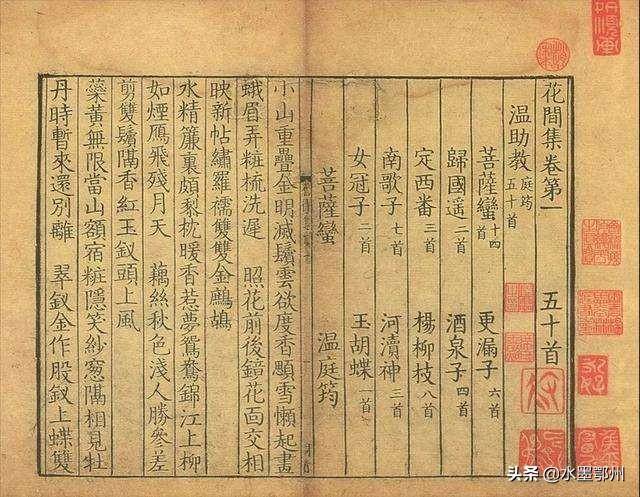 花間集卷第一 五十首
温助教庭筠 五十首
菩薩蠻十四首 更漏子六首
歸國遥二首 酒泉子四首
定西番三首 楊柳枝八首
南歌子七首 河瀆神三首
女冠子二首 玉胡蝶一首
菩薩蠻 温庭筠
小山重疊金明滅鬢雲欲度香顋雪懶起畫
蛾眉弄粧梳洗遲 照花前後鏡花面交相
映新帖繡羅襦雙雙金鷓鴣
水精簾裏頗黎枕暖香惹夢鴛鴦錦江上柳
如煙鴈飛殘月天 藕絲秋色淺人勝參差
剪雙鬢隔香紅玉釵頭上風
蘂黃無限當山額宿粧隱笑紗窓隔相見牡
丹時暫來還別離 翠釵金作股釵上蝶雙
头条 @水墨鄂州